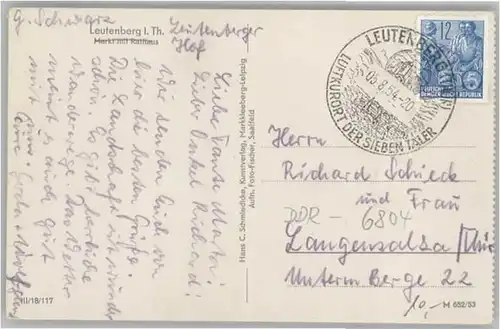 G. Schwarz
Leutenberg i. Th.
Markt mit Rathaus
Leutenberger
Hof
Liebe Tante Mathi!
Lieber Onkel Richard!
Wir senden Euch von
hier die besten Grüße.
Die Landschaft ist wunder
schön. Es gibt herrliche
Wanderwege. Das Wetter
meint es auch gut
mit uns.
Eure
III/18/117
Hans C. Schmiedicke, Kunstverlag, Markkleeberg-Leipzig
Aufn. Foto-Fischer, Saalfeld
LEUTENBERG
05.8.54.-20
LUFTKURORT DER SIEBEN TÄLER
12
5
DEUTSCHE
DEMOKRATISCHE REPUBLIK
Herrn
Richard Schieck
und Frau
DDR - 6804
Langensalza/Thür
Unterm Berge 22
10,-
H 652/53